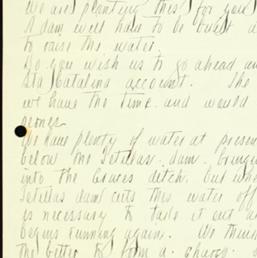 We are planting this for you
A dam will have to be built a
to raise the water.
Do you wish us to go ahead an
Sta Catalina account. She
we have the time and would

We have plenty of water at presen
below the dam. bringi
into the Graces ditch. but whe
dam cuts this water off
is necessary to take it out a
begins running again. We think
the better to form a charco